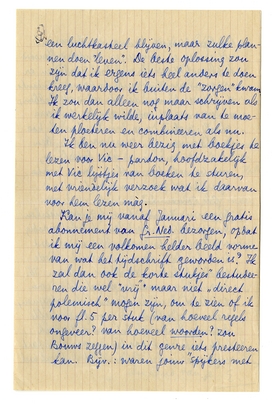 een luchtkasteel blijven, maar zulke plan-
nen doen "leven". De beste oplossing zou
zijn dat ik ergens iets heel anders te doen
kreeg, waardoor ik buiten de "zorgen" kwam.
Ik zou dan alleen nog maar schrijven als
ik werkelijk wilde, inplaats van te moe-
ten ploeteren en combineeren als nu.
Ik ben nu weer bezig met boekjes te
lezen voor Vic – pardon, hoofdzakelijk
met Vic lijstjes van boeken te sturen,
met vriendelijk verzoek wat ik daarvan
voor hem lezen mag.
Kan je mij vanaf Januari een gratis
abonnement van Gr. Ned. bezorgen, opdat
ik mij een volkomen helder beeld vorme
van wat het tijdschrift geworden is? Ik
zal dan ook de korte stukjes bestudee-
ren die wel "vrij" maar niet "direct
polemisch" mogen zijn, om te zien of ik
voor fl. 5 per stuk (van hoeveel regels
ongeveer? van hoeveel woorden? zou
Bouws zeggen) in dit genre iets presteeren
kan. Bijv.: waren jouw "spijkers met